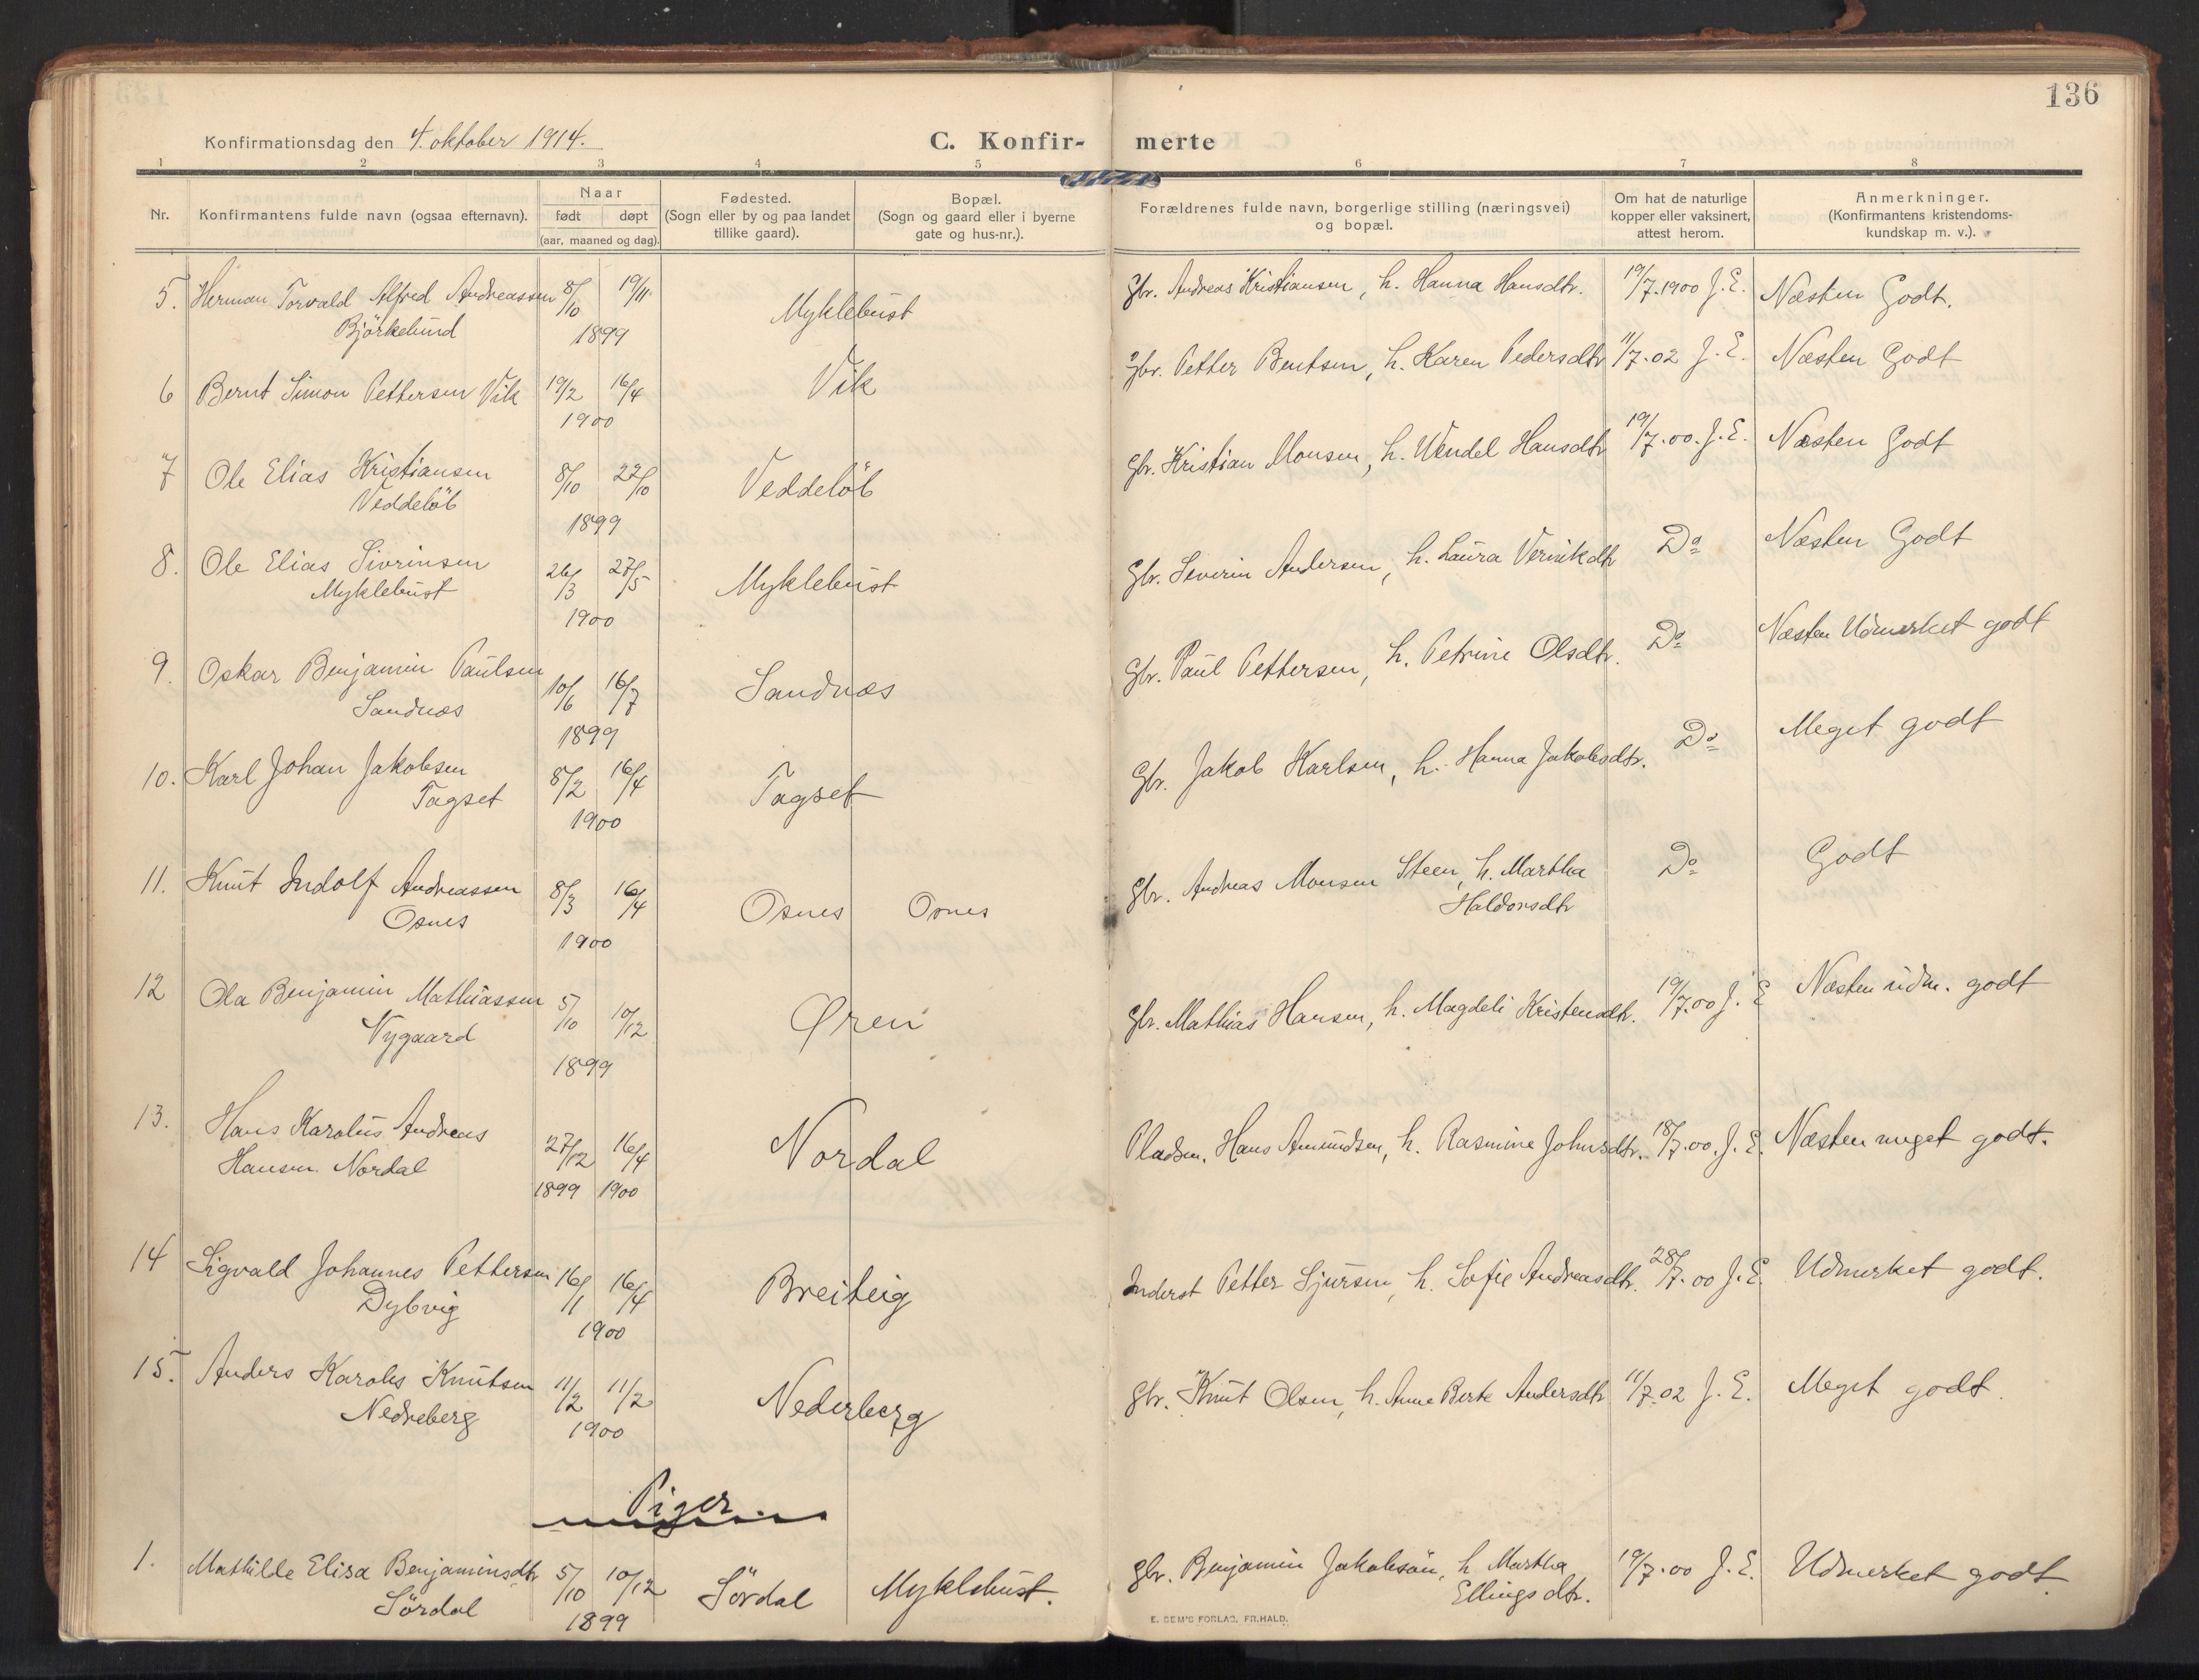 136
Konfirmationsdag den 4. oktober 1914.
C. Konfir- merte
1 2 3 4 5 6 7 8
Nr.
Konfirmantens fulde navn (ogsaa efternavn).
Naar
født døpt
(aar, maaned og dag).
Fødested.
(Sogn eller by og paa landet
tillike gaard).
Bopæl.
(Sogn og gaard eller i byerne
gate og hus-nr.).
Forældrenes fulde navn, borgerlige stilling (næringsvei)
og bopæl.
Om hat de naturlige
kopper eller vaksinert,
attest herom.
Anmerkninger.
(Konfirmantens kristendoms-
kundskap m. v.).
5. Herman Torvald Alfred Andreassen 8/10 19/11 Myklebust Gbr. Andreas Kristiansen, h. Hanna Hansdtr. 19/7.1900 J. E. Næsten Godt.
Björkelund 1899
6 Bernt Simon Pettersen Vik 19/2 16/4 Vik Gbr. Petter Bentsen, h. Karen Pedersdtr 11/7.02 J. E. Næsten Godt
1900
7 Ole Elias Kristiansen 8/10 22/10 Veddelöb Gbr. Kristian Monsen, h. Wendel Hansdtr 19/7.00. J. E. Næsten Godt
Veddelöb
1899
8. Ole Elias Sivrinsen 26/3 27/5 Myklebust Gbr. Severin Andersen, h. Laura Vernikdtr Do Næsten Godt
Myklebust
1900
9. Oskar Benjamin Paulsen 10/6 16/7 Sandnæs Gbr. Paul Pettersen, h. Petrine Olsdtr. Do Næsten Udmerket godt
Sandnæs
1899
10. Karl Johan Jakobsen 8/2 16/4 Tagset Gbr. Jakob Karlsen, h. Hanna Jakobsdtr. Do Meget godt
Tagset
1900
11. Knut Indolf Andreassen 8/3 16/4 Osnes Osnes Gbr. Andreas Monsen Steen, h. Martha Do Godt
Osnes Haldorsdtr
1900
12 Ola Benjamin Mathiassen 5/10 10/12 Øren Gbr. Mathias Hansen, h. Magdeli Kristensdtr. 19/7.00 J. E Næsten udm. godt
Nygaard
1899
13. Hans Karolus Andreas 27/12 16/4 Nordal Pladsm. Hans Amundsen, h. Rasmine Johnsdtr. 18/7.00. J. E. Næsten meget godt.
Hansen Nordal
1899 1900
14 Sigvald Johannes Pettersen 16/1 16/4 Breiteig Inderst Petter Sjursen, h. Sofie Andreasdtr. 28/7.00 J. E. Udmerket godt.
Dybvig
1900
15. Anders Karolus Knutsen 11/2 11/2 Nederberg Gbr. Knut Olsen, h. Anne Berte Andersdtr 11/7.02 J. E. Meget godt.
Nedreberg
1900
Piger.
1. Mathilde Elisa Benjaminsdtr 5/10 10/12 Sördal Myklebust. Gbr. Benjamin Jakobsön, h Martha 19/7.00 J. E. Udmerket godt.
Sördal Ellingsdtr.
1899
E. SEM'S FORLAG, FR.HALD.